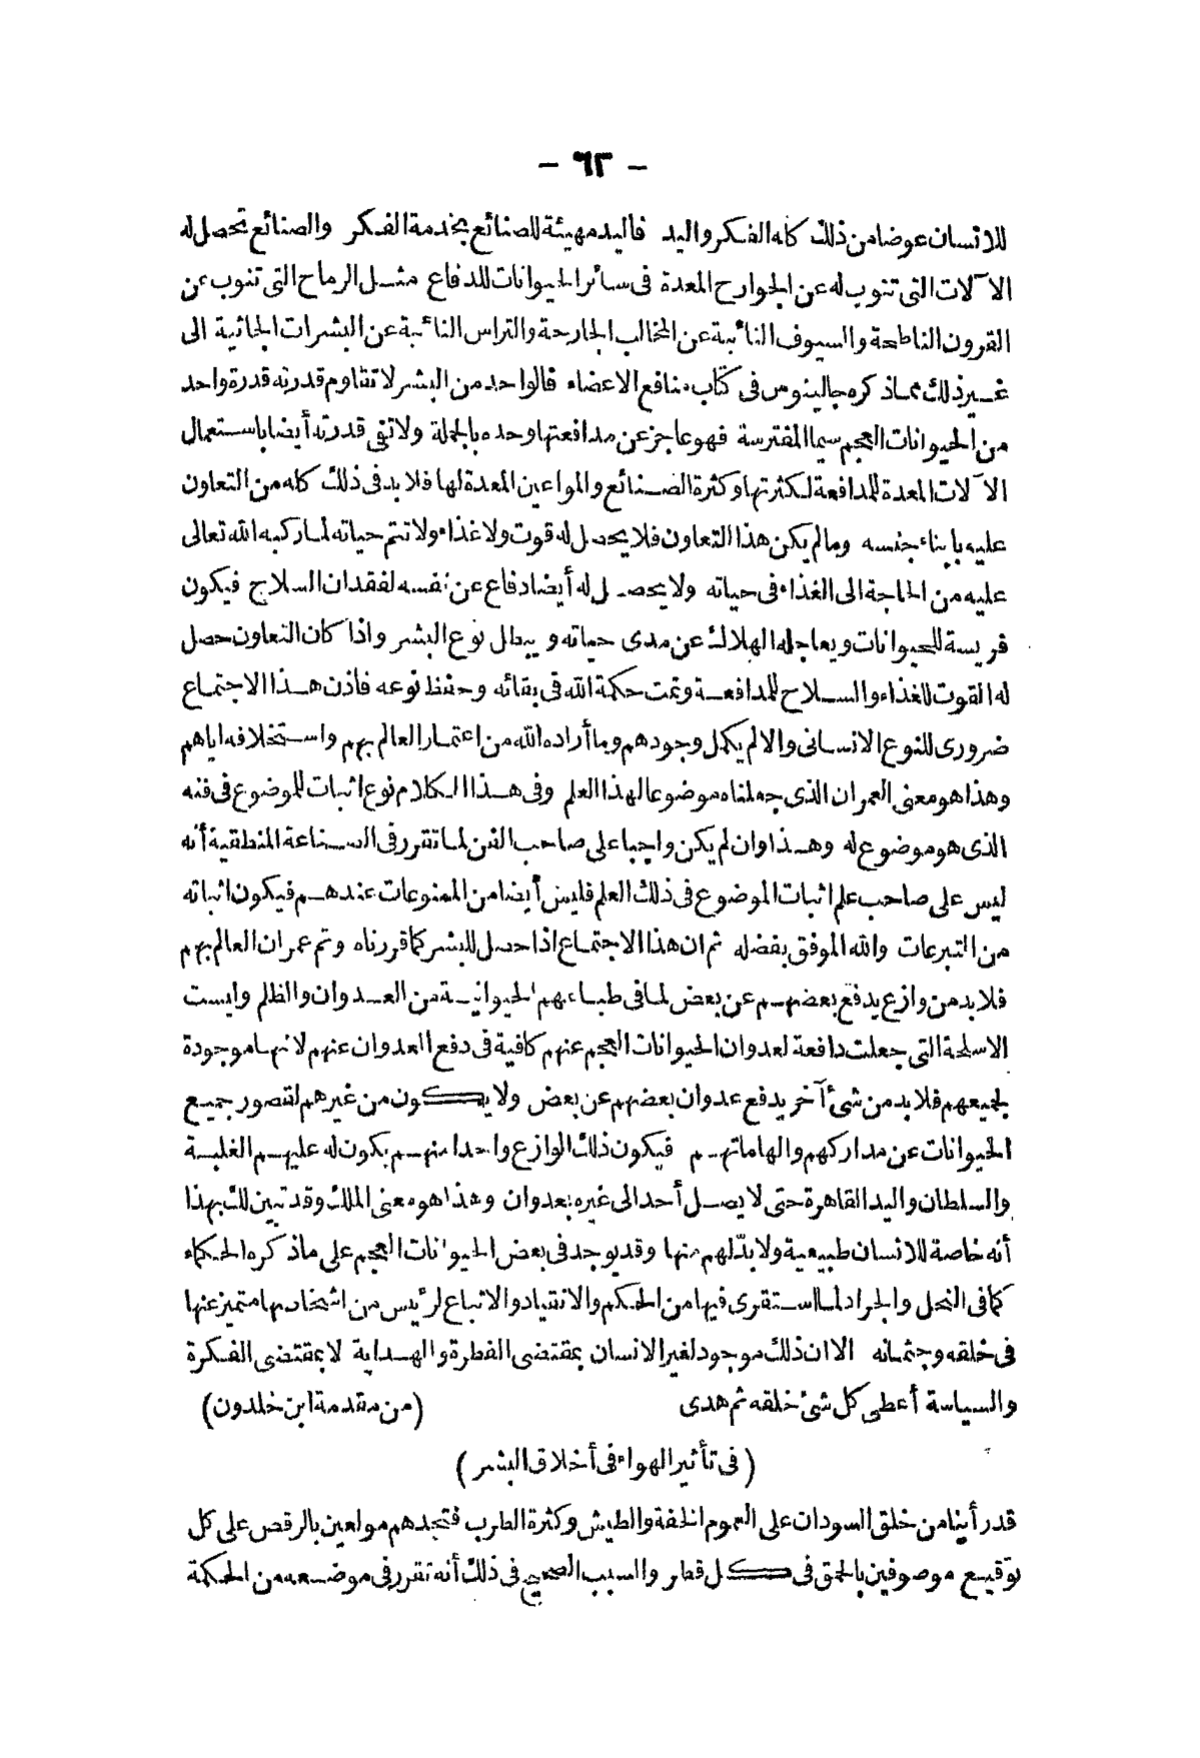 — ٦٢ —
للانسان عوضا من ذلك كله الفكر واليد فاليد مهيئة للصنائع بخدمة الفكر والصنائع تحصل له
الآلات التى تنوب له عن الجوارح المعدة فى سائر الحيوانات للدفاع مثل الرماح التى تنوب عن
القرون الناطحة والسيوف النائبة عن المخالب الجارحة والتراس النائبة عن البشرات الجاثية الى
غير ذلك مما ذكره جالينوس فى كتاب منافع الاعضاء فالواحد من البشر لا تقاوم قدرته قدرة واحد
من الحيوانات العجم سيما المفترسة فهو عاجز عن مدافعتها وحده بالجملة ولا تفى قدرته أيضا باستعمال
الآلات المعدة للمدافعة لكثرتها وكثرة الصنائع والمواعين المعدة لها فلا بد فى ذلك كله من التعاون
عليه بابناء جنسه وما لم يكن هذا التعاون فلا يحصل له قوت ولا غذاء ولا تتم حياته لما ركبه الله تعالى
عليه من الحاجة الى الغذاء فى حياته ولا يحصل له أيضا دفاع عن نفسه لفقدان السلاح فيكون
فريسة للحيوانات ويعاجله الهلاك عن مدى حياته ويبطل نوع البشر واذا كان التعاون حصل
له القوت للغذاء والسلاح للمدافعة وتمت حكمة الله فى بقائه وحفظ نوعه فاذن هذا الاجتماع
ضرورى للنوع الانسانى والا لم يكمل وجودهم وما أراده الله من اعتمار العالم بهم واستخلافه اياهم
وهذا هو معنى العمران الذى جعلناه موضوعا لهذا العلم وفى هذا الكلام نوع اثبات للموضوع فى فنه
الذى هو موضوع له وهذا وان لم يكن واجبا على صاحب الفن لما تقرر فى الصناعة المنطقية أنه
ليس على صاحب علم اثبات الموضوع فى ذلك العلم فليس أيضا من الممنوعات عندهم فيكون اثباته
من التبرعات والله الموفق بفضله ثم ان هذا الاجتماع اذا حصل للبشر كما قررناه وتم عمران العالم بهم
فلا بد من وازع يدفع بعضهم عن بعض لما فى طباعهم الحيوانية من العدوان والظلم وليست
الاسلحة التى جعلت دافعة لعدوان الحيوانات العجم عنهم كافية فى دفع العدوان عنهم لانها موجودة
لجميعهم فلا بد من شئ آخر يدفع عدوان بعضهم عن بعض ولا يكون من غيرهم لقصور جميع
الحيوانات عن مداركهم والهاماتهم فيكون ذلك الوازع واحدا منهم يكون له عليهم الغلبة
والسلطان واليد القاهرة حتى لا يصل أحد الى غيره بعدوان وهذا هو معنى الملك وقد تبين لك بهذا
أنه خاصة للانسان طبيعية ولا بدّ لهم منها وقد يوجد فى بعض الحيوانات العجم على ما ذكره الحكماء
كما فى النحل والجراد لما استقرى فيها من الحكم والانقياد والاتباع لرئيس من اشخاصها متميز عنها
فى خلقه وجثمانه الا ان ذلك موجود لغير الانسان بمقتضى الفطرة والهداية لا بمقتضى الفكرة
والسياسة أعطى كل شئ خلقه ثم هدى (من مقدمة ابن خلدون)
(فى تأثير الهواء فى أخلاق البشر)
قد رأينا من خلق السودان على العموم الخفة والطيش وكثرة الطرب فتجدهم مولعين بالرقص على كل
توقيع موصوفين بالحمق فى كل قطر والسبب الصحيح فى ذلك أنه تقرر فى موضعه من الحكمة